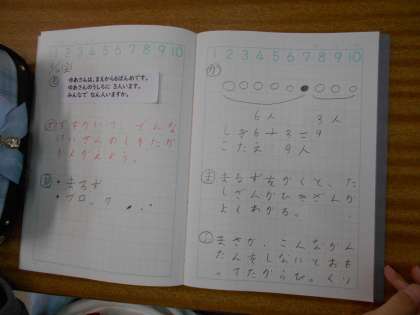 1 2 3 4 5 6 7 8 9 10
ゆあさんは、まえから6ばんめです。
ゆあさんのうしろに 3人います。
みんなで なん人いますか。
ずをかいて、どんな
けいさんのしきだか
かんがえよう。
・まるず
・ブロック
1 2 3 4 5 6 7 8 9 10
6人 3人
しき6+3=9
こたえ 9人
ま まるずをかくと、た
しざんかひきざんか
よくわかる。
まさか、こんなかん
たんをしないとおも
ってたからびっくり